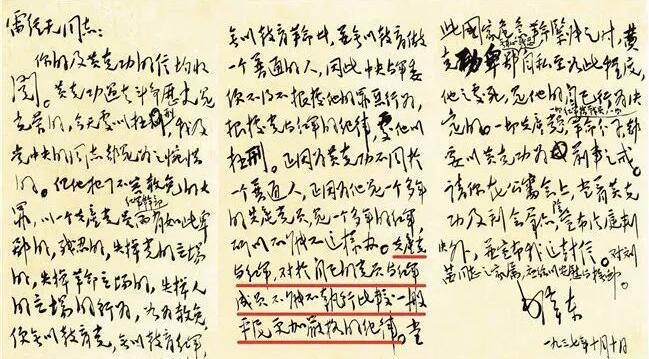 雷经天同志：
你的及黄克功的信均收
阅。黄克功过去斗争历史是
光荣的，今天处以极刑，我及
党中央的同志都是为之惋惜
的。但他犯了不容赦免的大
罪，以一个共产党员红军干部而有如此卑
鄙的，残忍的，失掉党的立场
的，失掉革命立场的，失掉人
的立场的行为，如为赦免，
便无以教育党，无以教育红军，
无以教育革命者，并无以教育做
一个普通的人，因此中央与军委
便不得不根据他的罪恶行为，
根据党与红军的纪律，处他以
极刑。正因为黄克功不同于
一个普通人，正因为他是一个多年
的共产党员，是一个多年的红军，
所以不能不这样办。共产党
与红军，对于自己的党员与红军
成员不能不执行比较一般
平民更加严格的纪律。当
此国家危急革命紧张之时，黄
克功卑鄙无耻残忍自私至如此程度，
他之处死，是他的自己行为决
定的。一切共产党员，一切红军指战员，一切革命分子，都
要以黄克功为前车之戒。
请你在公审会上，当着黄克
功及到会群众，除宣布法庭判
决外，并宣布我这封信。对刘
茜同志之家属，应给以安慰与抚恤。
毛泽东
一九三七年十月十日